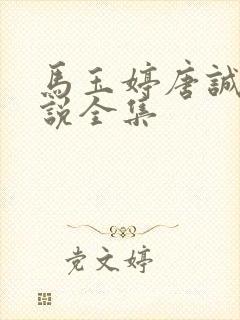 馬玉婷唐誠
說全集
党文婷